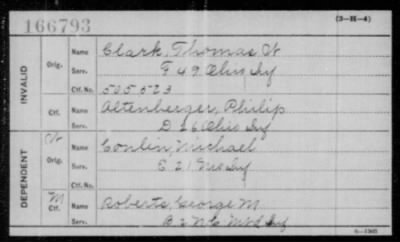 166793
(3-H-4)
INVALID
Orig.
Name Clark, Thomas W
Serv. F 49 Ohio Inf
Ctf. No. 505523
Ctf.
Name Altenberger, Philip
Serv. D 26 Ohio Inf
DEPENDENT
W
Orig.
Name Conlin, Michael
Serv. E 21 Inf
Ctf. No.
M
Ctf.
Name Roberts, George M
Serv. B 2 N C Mtd Inf